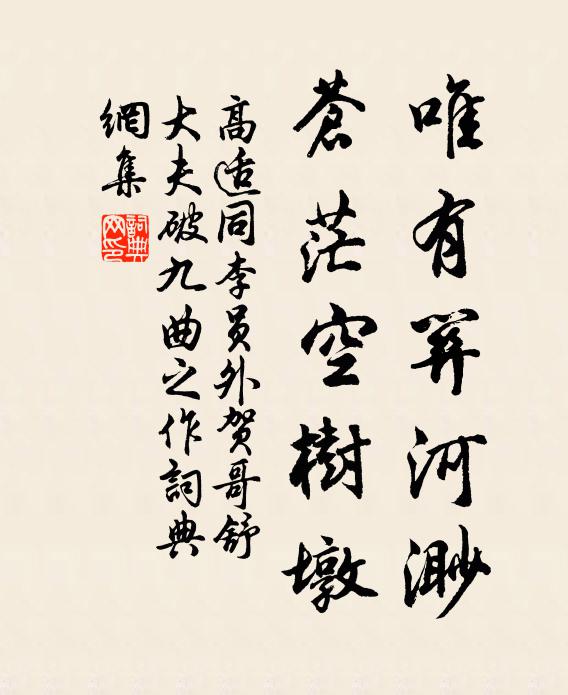 唯有關河渺
蒼茫空樹墩
高适同李員外贺哥舒
大夫破九曲之作詞典
網集
詞典網印